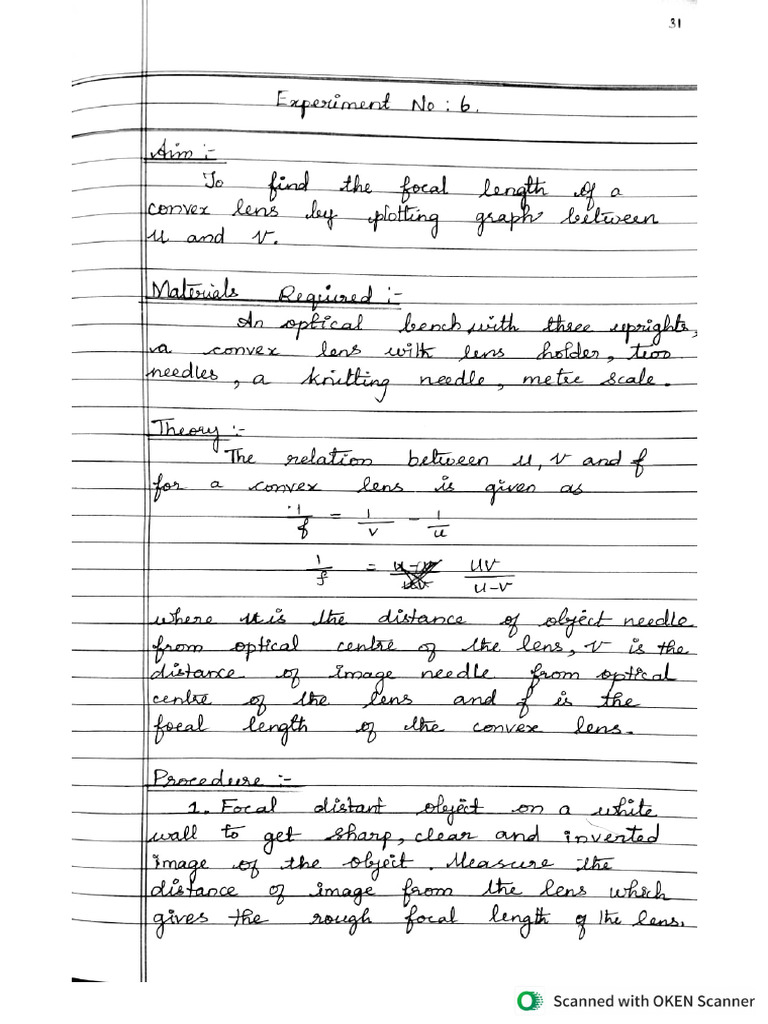 31
Experiment No : 6.
Aim :-
To find the focal length of a
convex lens by plotting graph between
u and v.
Materials Required :-
An optical bench with three uprights,
a convex lens with lens holder, two
needles, a knitting needle, metre scale.
Theory :-
The relation between u, v and f
for a convex lens is given as
1/f = 1/v - 1/u
1/f = uv/u-v
where u is the distance of object needle
from optical centre of the lens, v is the
distance of image needle from optical
centre of the lens and f is the
focal length of the convex lens.
Procedure :-
1. Focal distant object on a white
wall to get sharp, clear and inverted
image of the object. Measure the
distance of image from the lens which
gives the rough focal length of the lens.
Scanned with OKEN Scanner